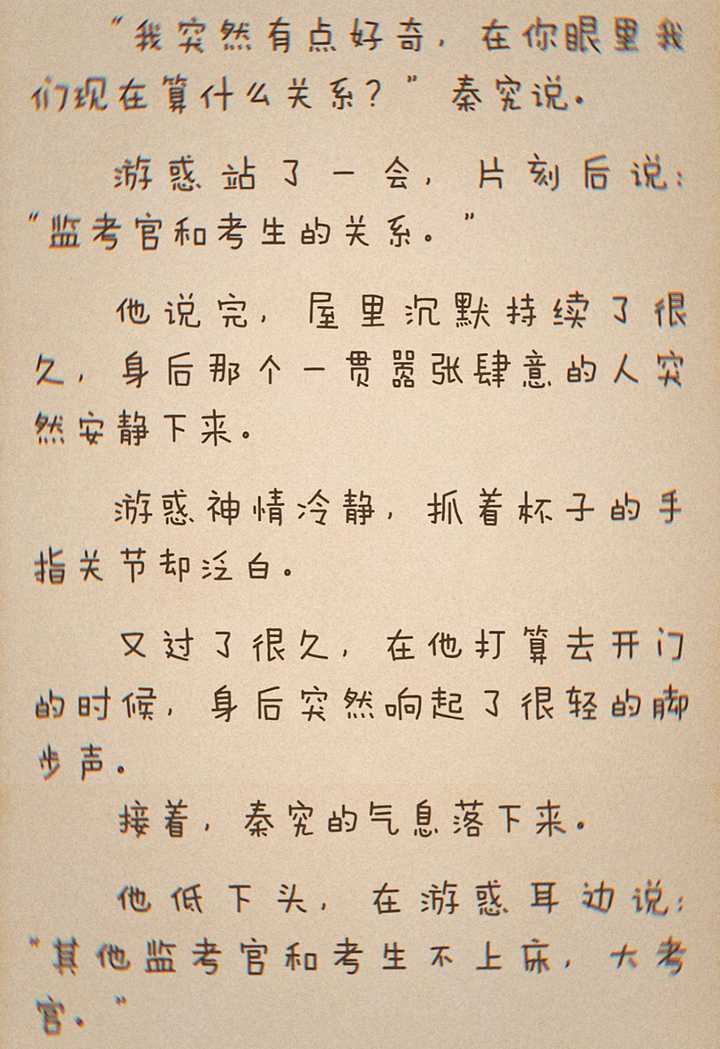 “我突然有点好奇，在你眼里我
们现在算什么关系？”秦究说。
游惑站了一会，片刻后说：
“监考官和考生的关系。”
他说完，屋里沉默持续了很
久，身后那个一贯嚣张肆意的人突
然安静下来。
游惑神情冷静，抓着杯子的手
指关节却泛白。
又过了很久，在他打算去开门
的时候，身后突然响起了很轻的脚
步声。
接着，秦究的气息落下来。
他低下头，在游惑耳边说：
“其他监考官和考生不上床，大考
官。”